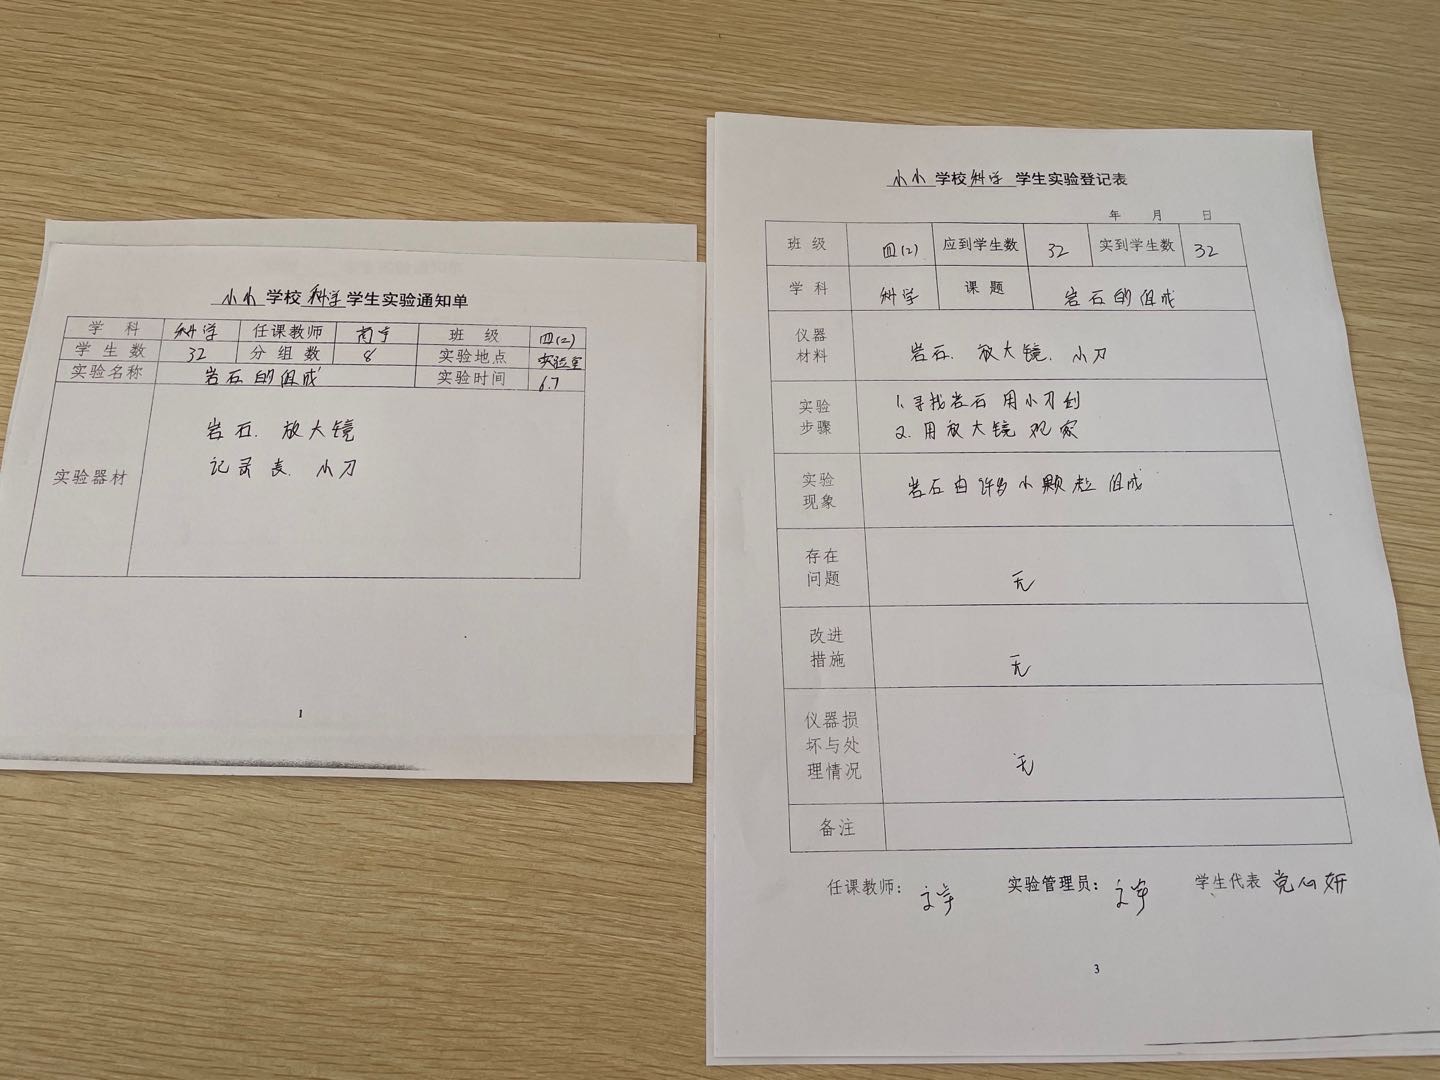 小小 学校 科学 学生实验通知单
学 科 科学 任课教师 班 级 四(2)
学 生 数 32 分 组 数 8 实验地点 实验室
实验名称 岩石的组成 实验时间 6.7
实验器材
岩石. 放大镜
记录表. 小刀
1
小小 学校 科学 学生实验登记表
年 月 日
班 级 四(2) 应到学生数 32 实到学生数 32
学 科 科学 课 题 岩石的组成
仪器
材料
岩石. 放大镜. 小刀
实验
步骤
1. 寻找岩石 用小刀刮
2. 用放大镜观察
实验
现象
岩石由许多小颗粒组成
存在
问题
无
改进
措施
无
仪器损
坏与处
理情况
无
备注
任课教师: 实验管理员: 学生代表 党心妍
3